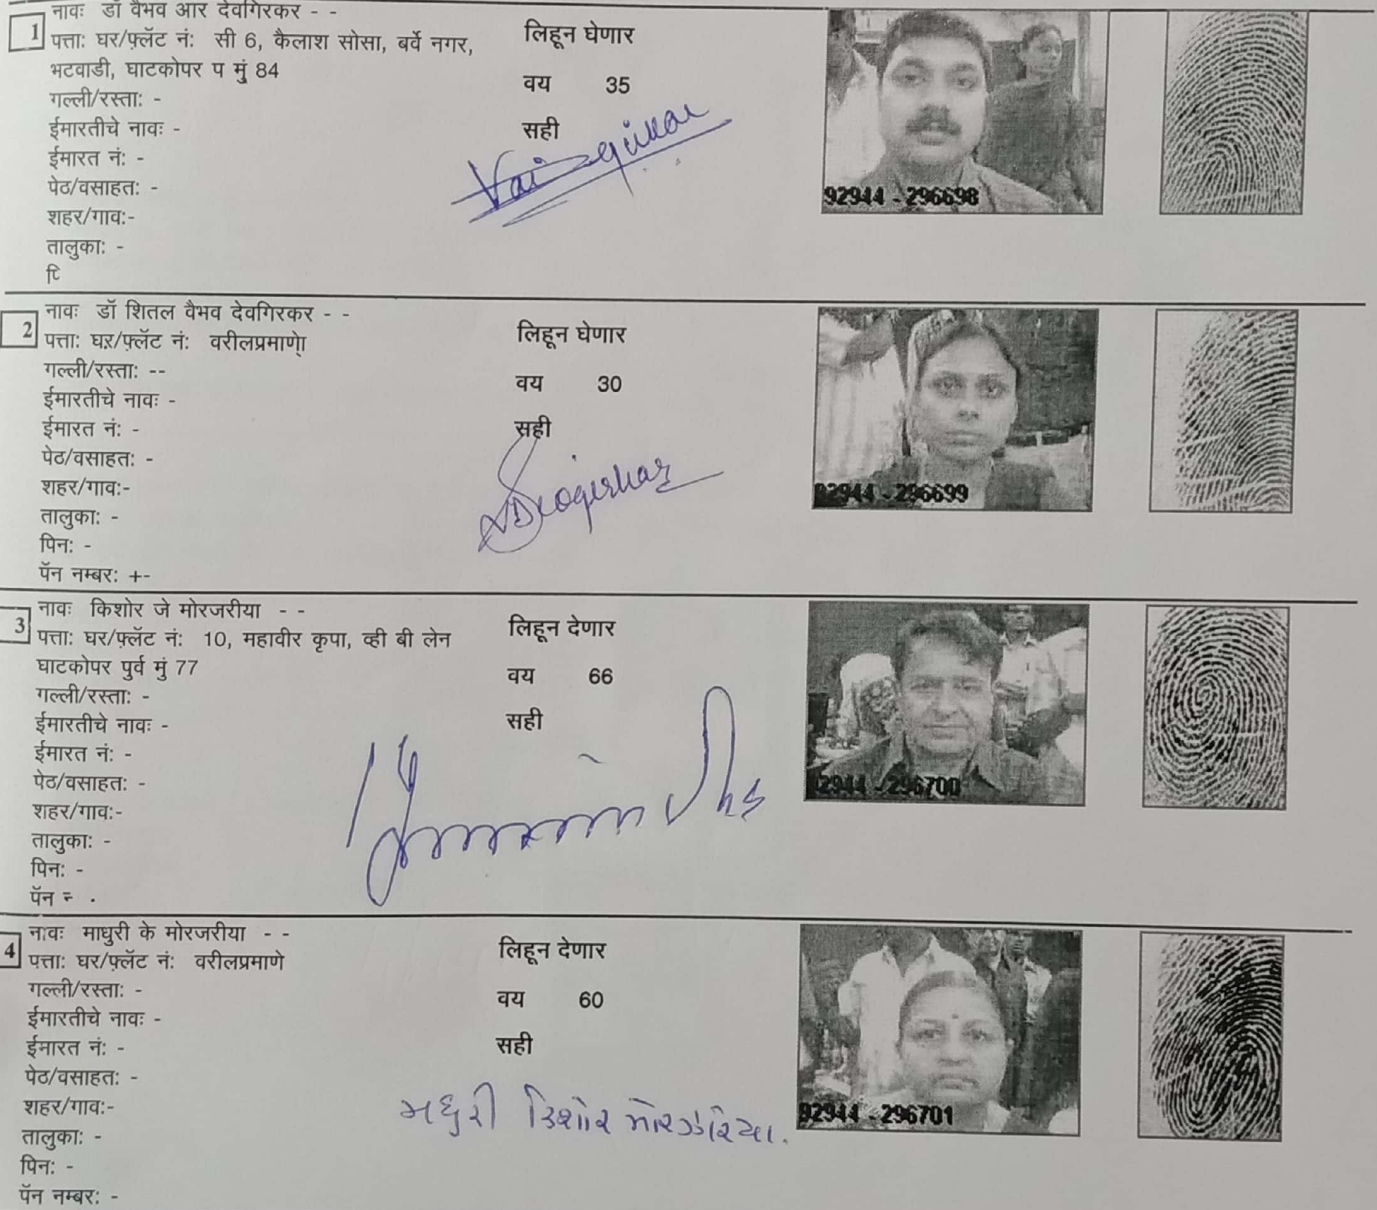 1
नावः डॉ वैभव आर देवगिरकर - -
पत्ताः घर/फ़्लॅट नंः सी 6, कैलाश सोसा, बर्वे नगर,
भटवाडी, घाटकोपर प मुं 84
गल्ली/रस्ताः -
ईमारतीचे नावः -
ईमारत नंः -
पेठ/वसाहतः -
शहर/गावः-
तालुकाः -
लिहून घेणार
वय 35
सही
92944 - 296698
2
नावः डॉ शितल वैभव देवगिरकर - -
पत्ताः घर/फ़्लॅट नंः वरीलप्रमाणे
गल्ली/रस्ताः --
ईमारतीचे नावः -
ईमारत नंः -
पेठ/वसाहतः -
शहर/गावः-
तालुकाः -
पिनः -
पॅन नम्बरः +-
लिहून घेणार
वय 30
सही
92944 - 296699
3
नावः किशोर जे मोरजरीया - -
पत्ताः घर/फ़्लॅट नंः 10, महावीर कृपा, व्ही बी लेन
घाटकोपर पुर्व मुं 77
गल्ली/रस्ताः -
ईमारतीचे नावः -
ईमारत नंः -
पेठ/वसाहतः -
शहर/गावः-
तालुकाः -
पिनः -
पॅन
लिहून देणार
वय 66
सही
92944 - 296700
4
नावः माधुरी के मोरजरीया - -
पत्ताः घर/फ़्लॅट नंः वरीलप्रमाणे
गल्ली/रस्ताः -
ईमारतीचे नावः -
ईमारत नंः -
पेठ/वसाहतः -
शहर/गावः-
तालुकाः -
पिनः -
पॅन नम्बरः -
लिहून देणार
वय 60
सही
92944 - 296701